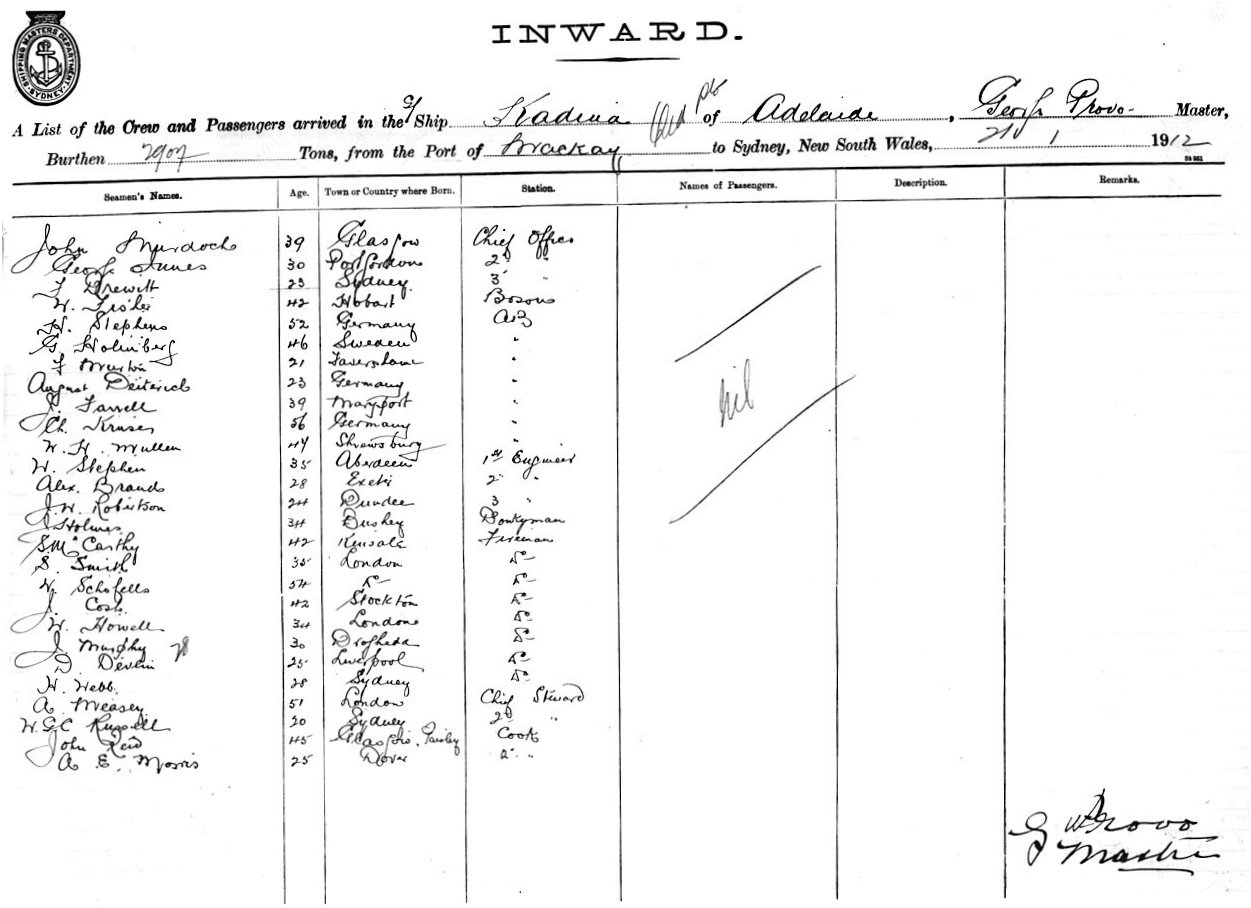 SHIPPING MASTERS DEPARTMENT
SYDNEY
INWARD.
A List of the Crew and Passengers arrived in the S/Ship Kadina of Adelaide, George Provo Master,
Burthen 2907 Tons, from the Port of Mackay to Sydney, New South Wales, 21 1 1912
Seamen's Names. Age. Town or Country where Born. Station. Names of Passengers. Description. Remarks.
John Murdoch 39 Glasgow Chief Officer
George Innes 30 Portgordon 2d "
F Drewitt 23 Sydney 3 "
W. Fisher 42 Hobart Bosun
H. Stephens 52 Germany AB
G. Holmberg 46 Sweden "
F Murton 21 Faversham "
August Deiterich 23 Germany "
J. Farrell 39 Maryport "
Ch. Kruser 56 Germany "
W. H. Mullen 44 Shrewsbury "
W. Stephen 35 Aberdeen 1st Engineer
Alex. Brands 28 Exeter 2 "
J. W. Robertson 24 Dundee 3 "
J Holmes 34 Bushey Donkyman
S McCarthy 42 Kinsale Fireman
S. Smith 35 London Do
W. Schofells 54 Do Do
J. Cosh. 42 Stockton Do
W. Howell 34 London Do
J. Murphy 30 Drogheda Do
D. Devlin 25 Liverpool Do
H. Webb. 28 Sydney Do
A. Measey 51 London Chief Steward
W.G.C Russell 20 Sydney 2d "
John Reid 45 Glasgow. Paisley Cook
A. E. Morris 25 Dover 2 "
Nil
G W Provo
Master